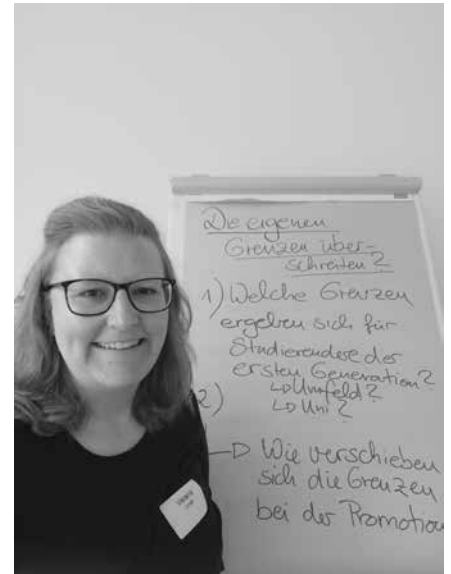 Die eigenen
Grenzen über-
schreiten?
1) Welche Grenzen
ergeben sich für
Studierende der
ersten Generation?
2) ↳ Umfeld?
↳ Uni?
→ Wie verschieben
sich die Grenzen
bei der Promotion